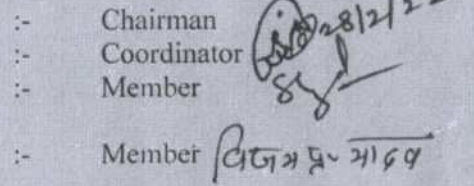 :- Chairman 28/2/22
:- Coordinator
:- Member
:- Member विजय प्र॰ यादव